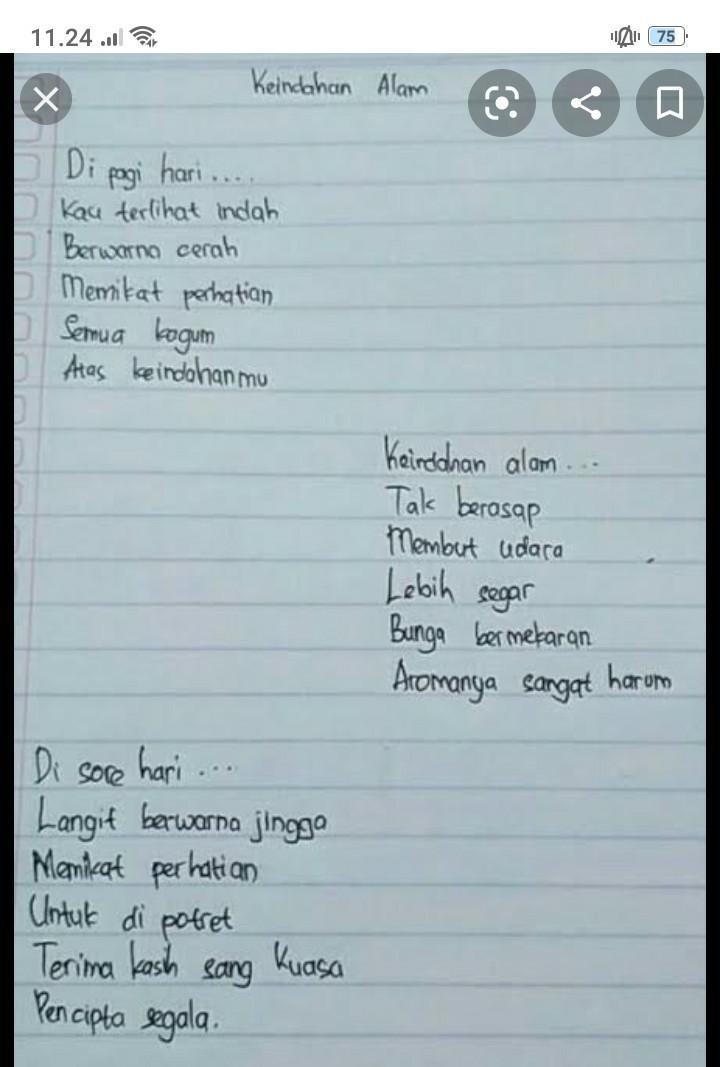 11.24
75
Keindahan Alam
Di pagi hari....
Kau terlihat indah
Berwarna cerah
Memikat perhatian
Semua kagum
Atas keindahanmu
Keindahan alam...
Tak berasap
Membut udara
Lebih segar
Bunga bermekaran
Aromanya sangat harum
Di sore hari...
Langit berwarna jingga
Memikat perhatian
Untuk di potret
Terima kasih sang Kuasa
Pencipta segala.